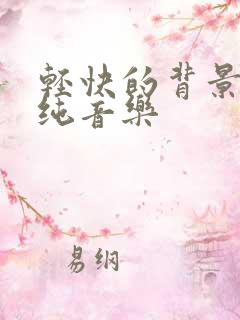 輕快的背景
纯音樂
易纲